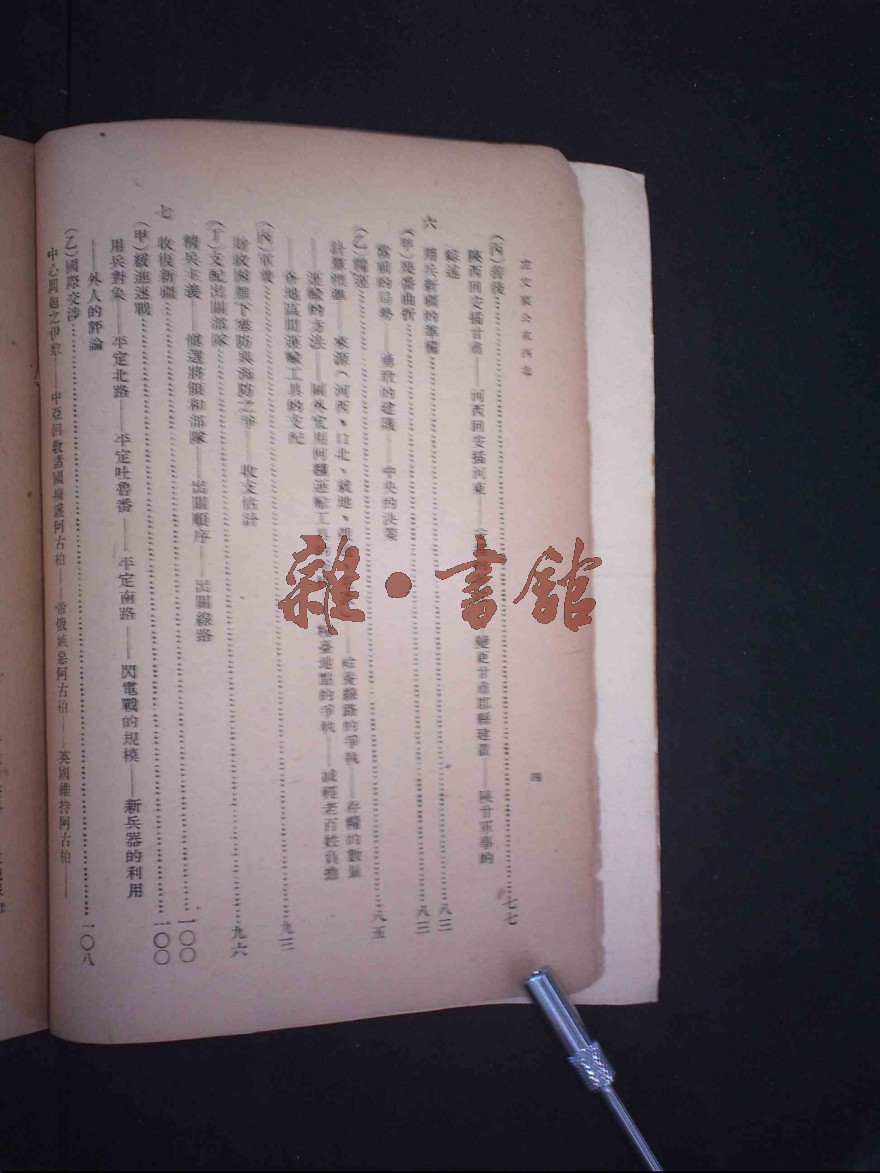 左文襄公在西北
四
(丙)善後……七七
陝西回安插甘肅——河西回安插河東——變更甘肅郡縣建置——陝甘軍事的
綜述
六 用兵新疆的準備……八三
(甲)幾番曲折……八三
當前的局勢——勇敢的建議——中央的決策
(乙)糧運……八五
計算標準——來源(河西、口北、——給養線路的爭執——存糧的數量
——運輸的方法——關外宜用何種運輸工具的——糧臺地點的爭執——減輕老百姓負擔
——各地區間運輸工具的支配
(丙)軍費……九三
財政困難下塞防與海防之爭——收支估計
(丁)支配出關部隊……九六
精兵主義——慎選將領和部隊——出關順序——出關線路
七 收復新疆……一〇〇
(甲)緩進速戰……一〇〇
用兵對象——平定北路——平定吐魯番——平定南路——閃電戰的規模——新兵器的利用
——外人的評論
(乙)國際交涉……一〇八
中心問題之伊犂——中亞回教諸國擁護阿古柏——帝俄嫉忌阿古柏——英國維持阿古柏——
雜·書館